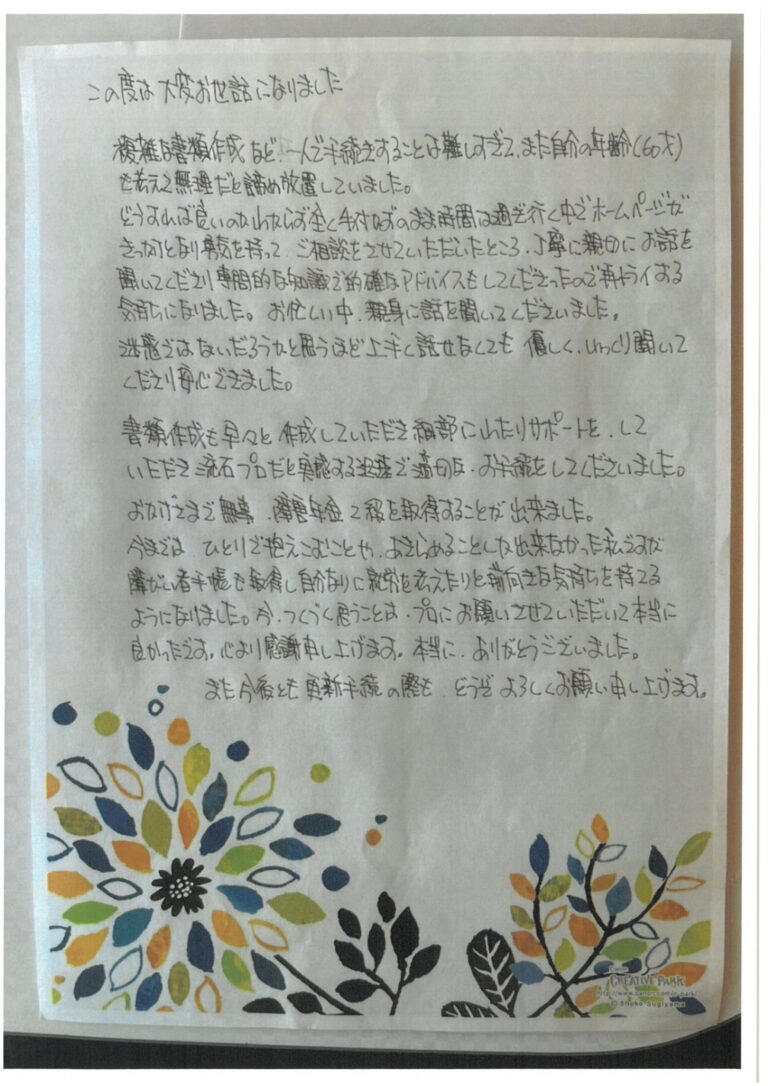 この度は大変お世話になりました
複雑な書類作成など、一人で手続きすることは難しすぎて、また自分の年齢(60才)
を考えて無理だと諦め放置していました。
どうすれば良いのかわからず全く手付かずのまま時間は過ぎ行く中でホームページが
きっかけとなり勇気を持って、ご相談をさせていただいたところ、丁寧に親切にお話を
聞いてくださり専門的な知識で的確なアドバイスもしてくださったので再トライする
気持ちになりました。お忙しい中、親身に話を聞いてくださいました。
迷惑ではないだろうかと思うほど上手く話せなくても優しく、じっくり聞いて
くださり安心できました。
書類作成も早々と作成していただき細部にわたりサポートを、して
いただき流石プロだと実感する迅速で適切な、お手続をしてくださいました。
おかげさまで無事、障害年金2級を取得することが出来ました。
今までは、ひとりで抱えこむことや、あきらめることしか出来なかった私ですが
障がい者手帳も取得し自分なりに就労を考えたりと前向きな気持ちを持てる
ようになりました。今、つくづく思うことは、プロにお願いさせていただいて本当に
良かったです。心より感謝申し上げます。本当に、ありがとうございました。
また今後とも更新手続の際も、どうぞよろしくお願い申し上げます。
CREATIVE PARK
© Shoko Sugiyama